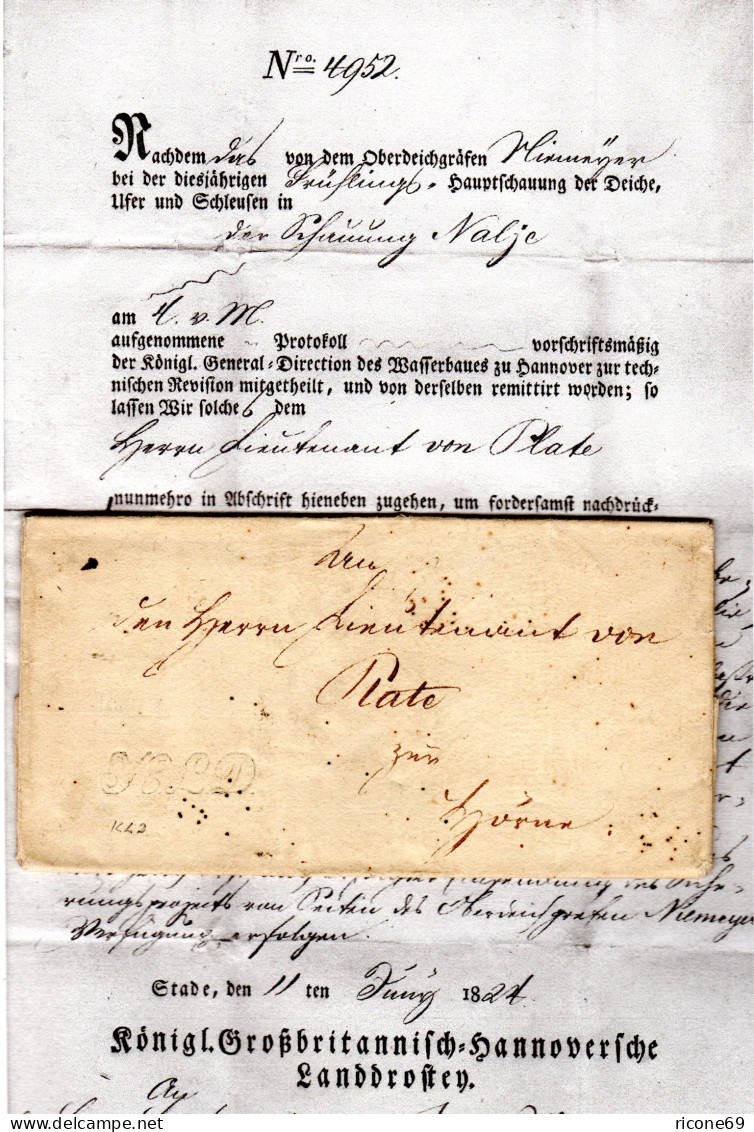 Nro. 4952.
Nachdem das von dem Oberdeichgräfen Niemeyer
bei der diesjährigen Frühlings-Hauptschauung der Deiche,
Ufer und Schleusen in
der Schauung Nalje
am 4. v. M.
aufgenommene Protokoll vorschriftsmäßig
der Königl. General-Direction des Wasserbaues zu Hannover zur tech-
nischen Revision mitgetheilt, und von derselben remittirt worden; so
lassen Wir solches dem
Herrn Lieutenant von Plate
nunmehro in Abschrift hieneben zugehen, um fordersamst nachdrück-
An
den Herrn Lieutenant von
Plate
zur
Hörne.
K.L.D.
KLD
rungsprojects von Seiten des Oberdeichgrefen Niemeyer
Verfügung erfolgen.
Stade, den 11 ten Juny 1824.
Königl. Großbritannisch-Hannoversche
Landdrostey.
An
ricone69